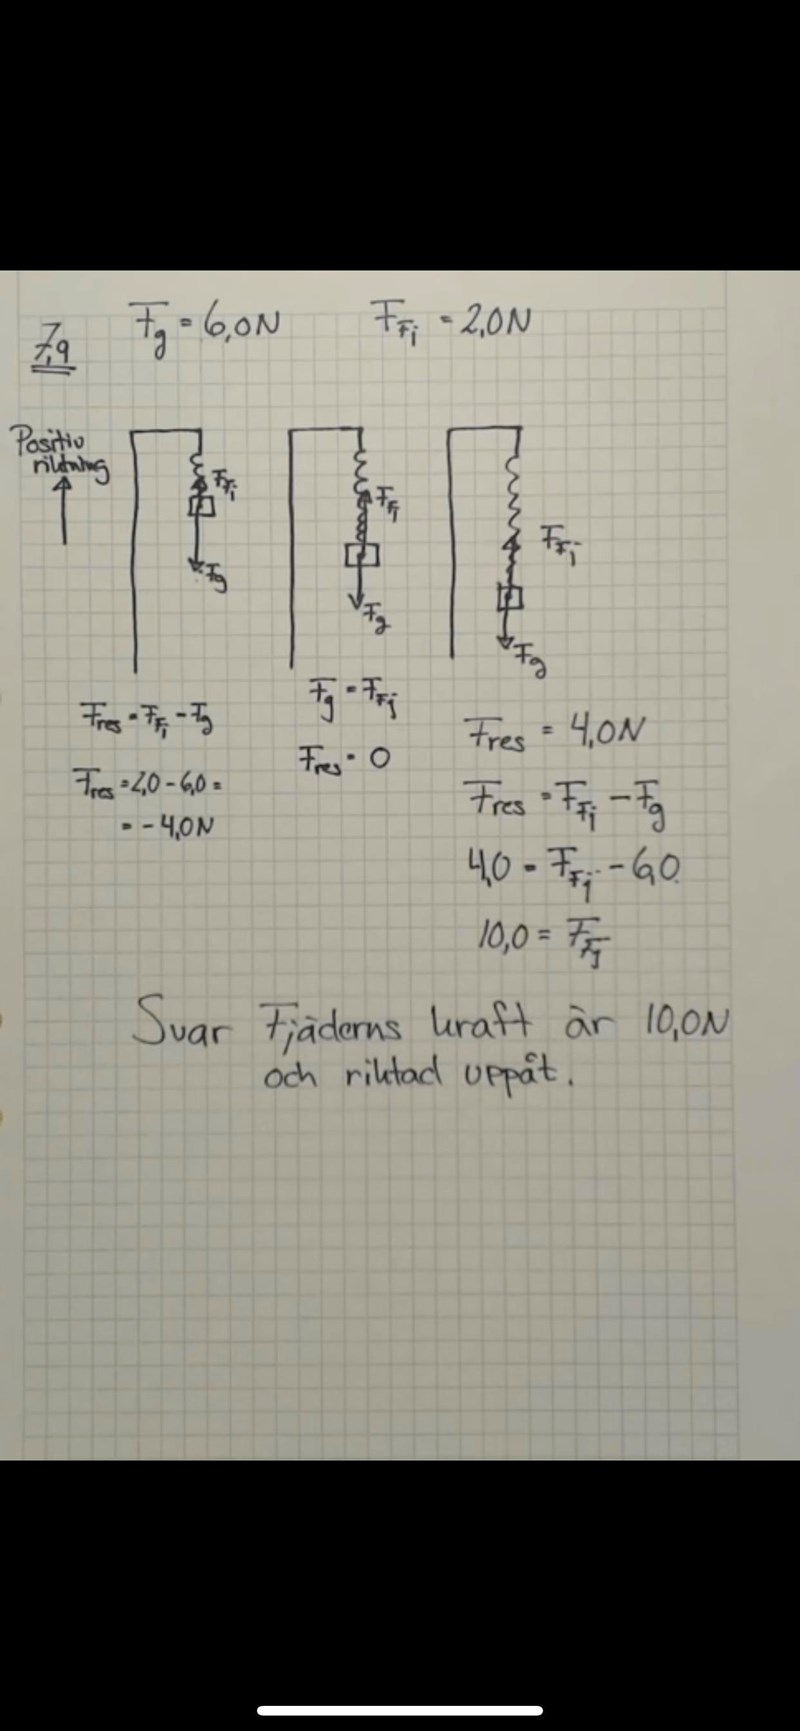 7,9
Fg = 6,0N
FFj = 2,0N
Positiv
riktning
FFj
Fg
FFj
Fg
FFj
Fg
Fres = FFj - Fg
Fres = 2,0 - 6,0 =
= -4,0N
Fg = FFj
Fres = 0
Fres = 4,0N
Fres = FFj - Fg
4,0 = FFj - 6,0
10,0 = FFj
Svar Fjäderns kraft är 10,0N
och riktad uppåt.